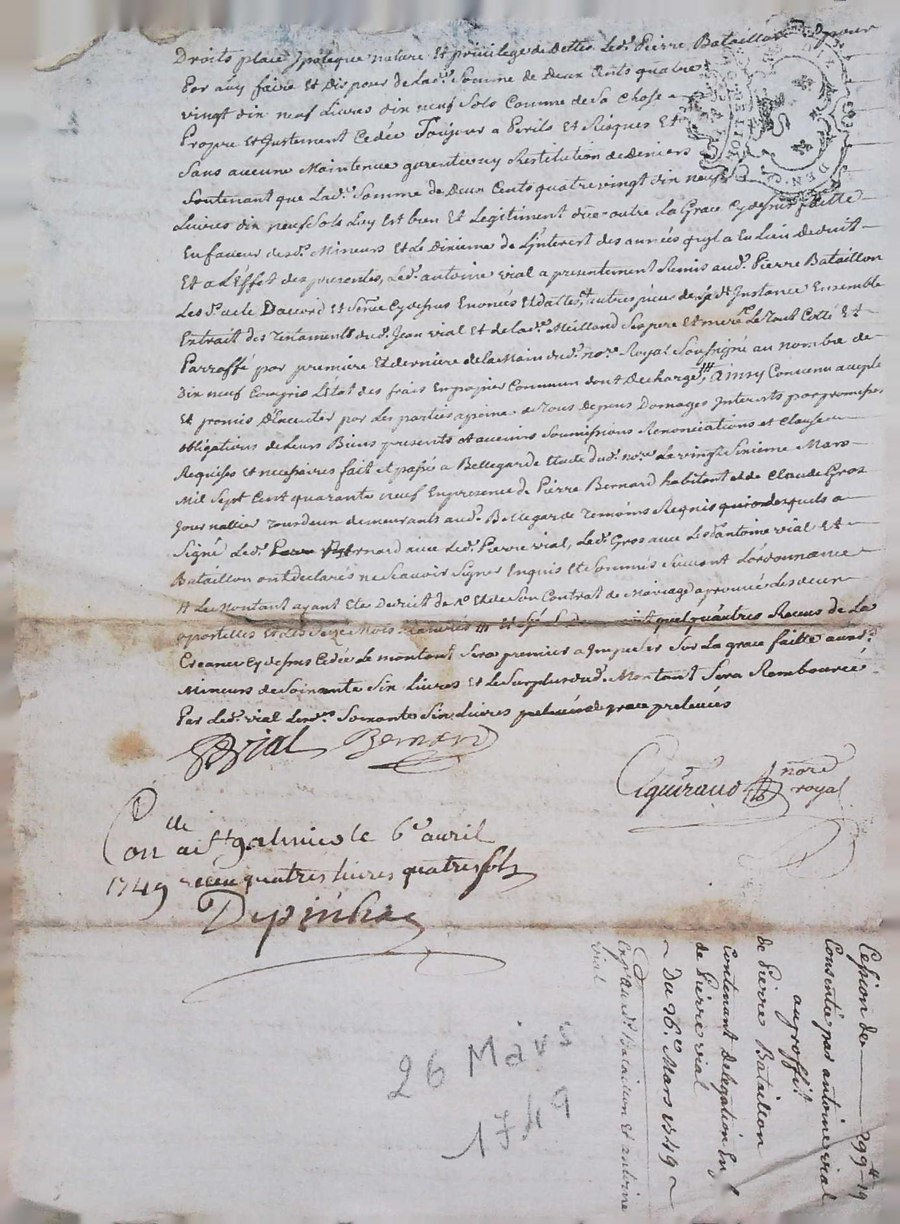 Droits place ypoteque nature Et privilege de Dettes Led.t Pierre Bataillon
Por auy faire Et Dispouser de lad.e Somme de Deux Cents quatre
vingt dix neuf Livres dix neuf Sols Comme de Sa Chose a
Propre Et justement Cedée Toujour a Perils Et Risques Et
Sans aucune Maintenue garentie ny Restitution de Deniers
Soutenant que Lad.e Somme de Deux Cents quatre vingt dix neuf
Livres dix neuf Sols Luy Est bien Et Legitiment düe outre La Grace Cydessus faitte
En faveur desd.ts Mineurs Et Le Dixieme de L'interest des années
Et a L'Effet des presentes, Led.t antoine vial a presentement Remis aud.t Pierre Bataillon
Lesd.ts acte Daccord et Cydessus Enoncés Et dattes, autres pieces de Instance Ensemble
Extrait des Testaments dud.t Jean vial Et de lad.e Meilland Ses pere Et mere Le Tout Cotté Et
Parraffé par premiere Et derniere de la Main dud.t no.re Royal Soussigné au nombre de
Dix neuf Compris L'état des frais En papier Commun dont Decharge, ainsy Convenu accepté
Et promis D'Executer par Les parties a peine de Tous Depens Domages Interests par promesses
obligations de Leurs Biens presents et avenirs Soumissions Renonciations et Clauses
Requises et necessaires fait et passé a Bellegarde Etude dud.t no.re Le vingt Sixieme Mars
Mil Sept Cent quarante neuf En presence de Pierre Bernard habitant et de Claude Gros
Journallier Tous deux demeurants aud.t Bellegarde Temoins Requis
Signé Led.t Bernard avec Led.t Pierre vial, Led.t Gros avec Lesd.ts antoine vial Et
Bataillon ont declarés ne Scavoir Signer Enquis Et Sommés Suivant L'ordonnance
Le Montant ayant Ete Deduit de Et de Son Contrat de Mariage aprouvé Les deux
apostilles et quelqu'autres Receus de La
Creance Cydessus Cedée Le montant Sera premier a Imputer Sur La grace faitte auxd.ts
Mineurs de Soixante Six Livres Et Le Surplus dud.t Montant Sera Remboursé
Par Led.t vial Lesd.tes Soixante Six Livres de grace prelevées
P Vial Bernard
Ciquiraud no.re royal
Con.lle a St galmier le 6.e avril
1749 receu quatres livres quatres sols
Depinhac
Cession de 299.# 19
Consentie par antoine vial
au proffit
de Pierre Bataillon
Contenant Delegation En f.
de Pierre vial
Du 26.e Mars 1749
Exp. Aud.t Bataillon et antoine
vial
26 Mars
1749